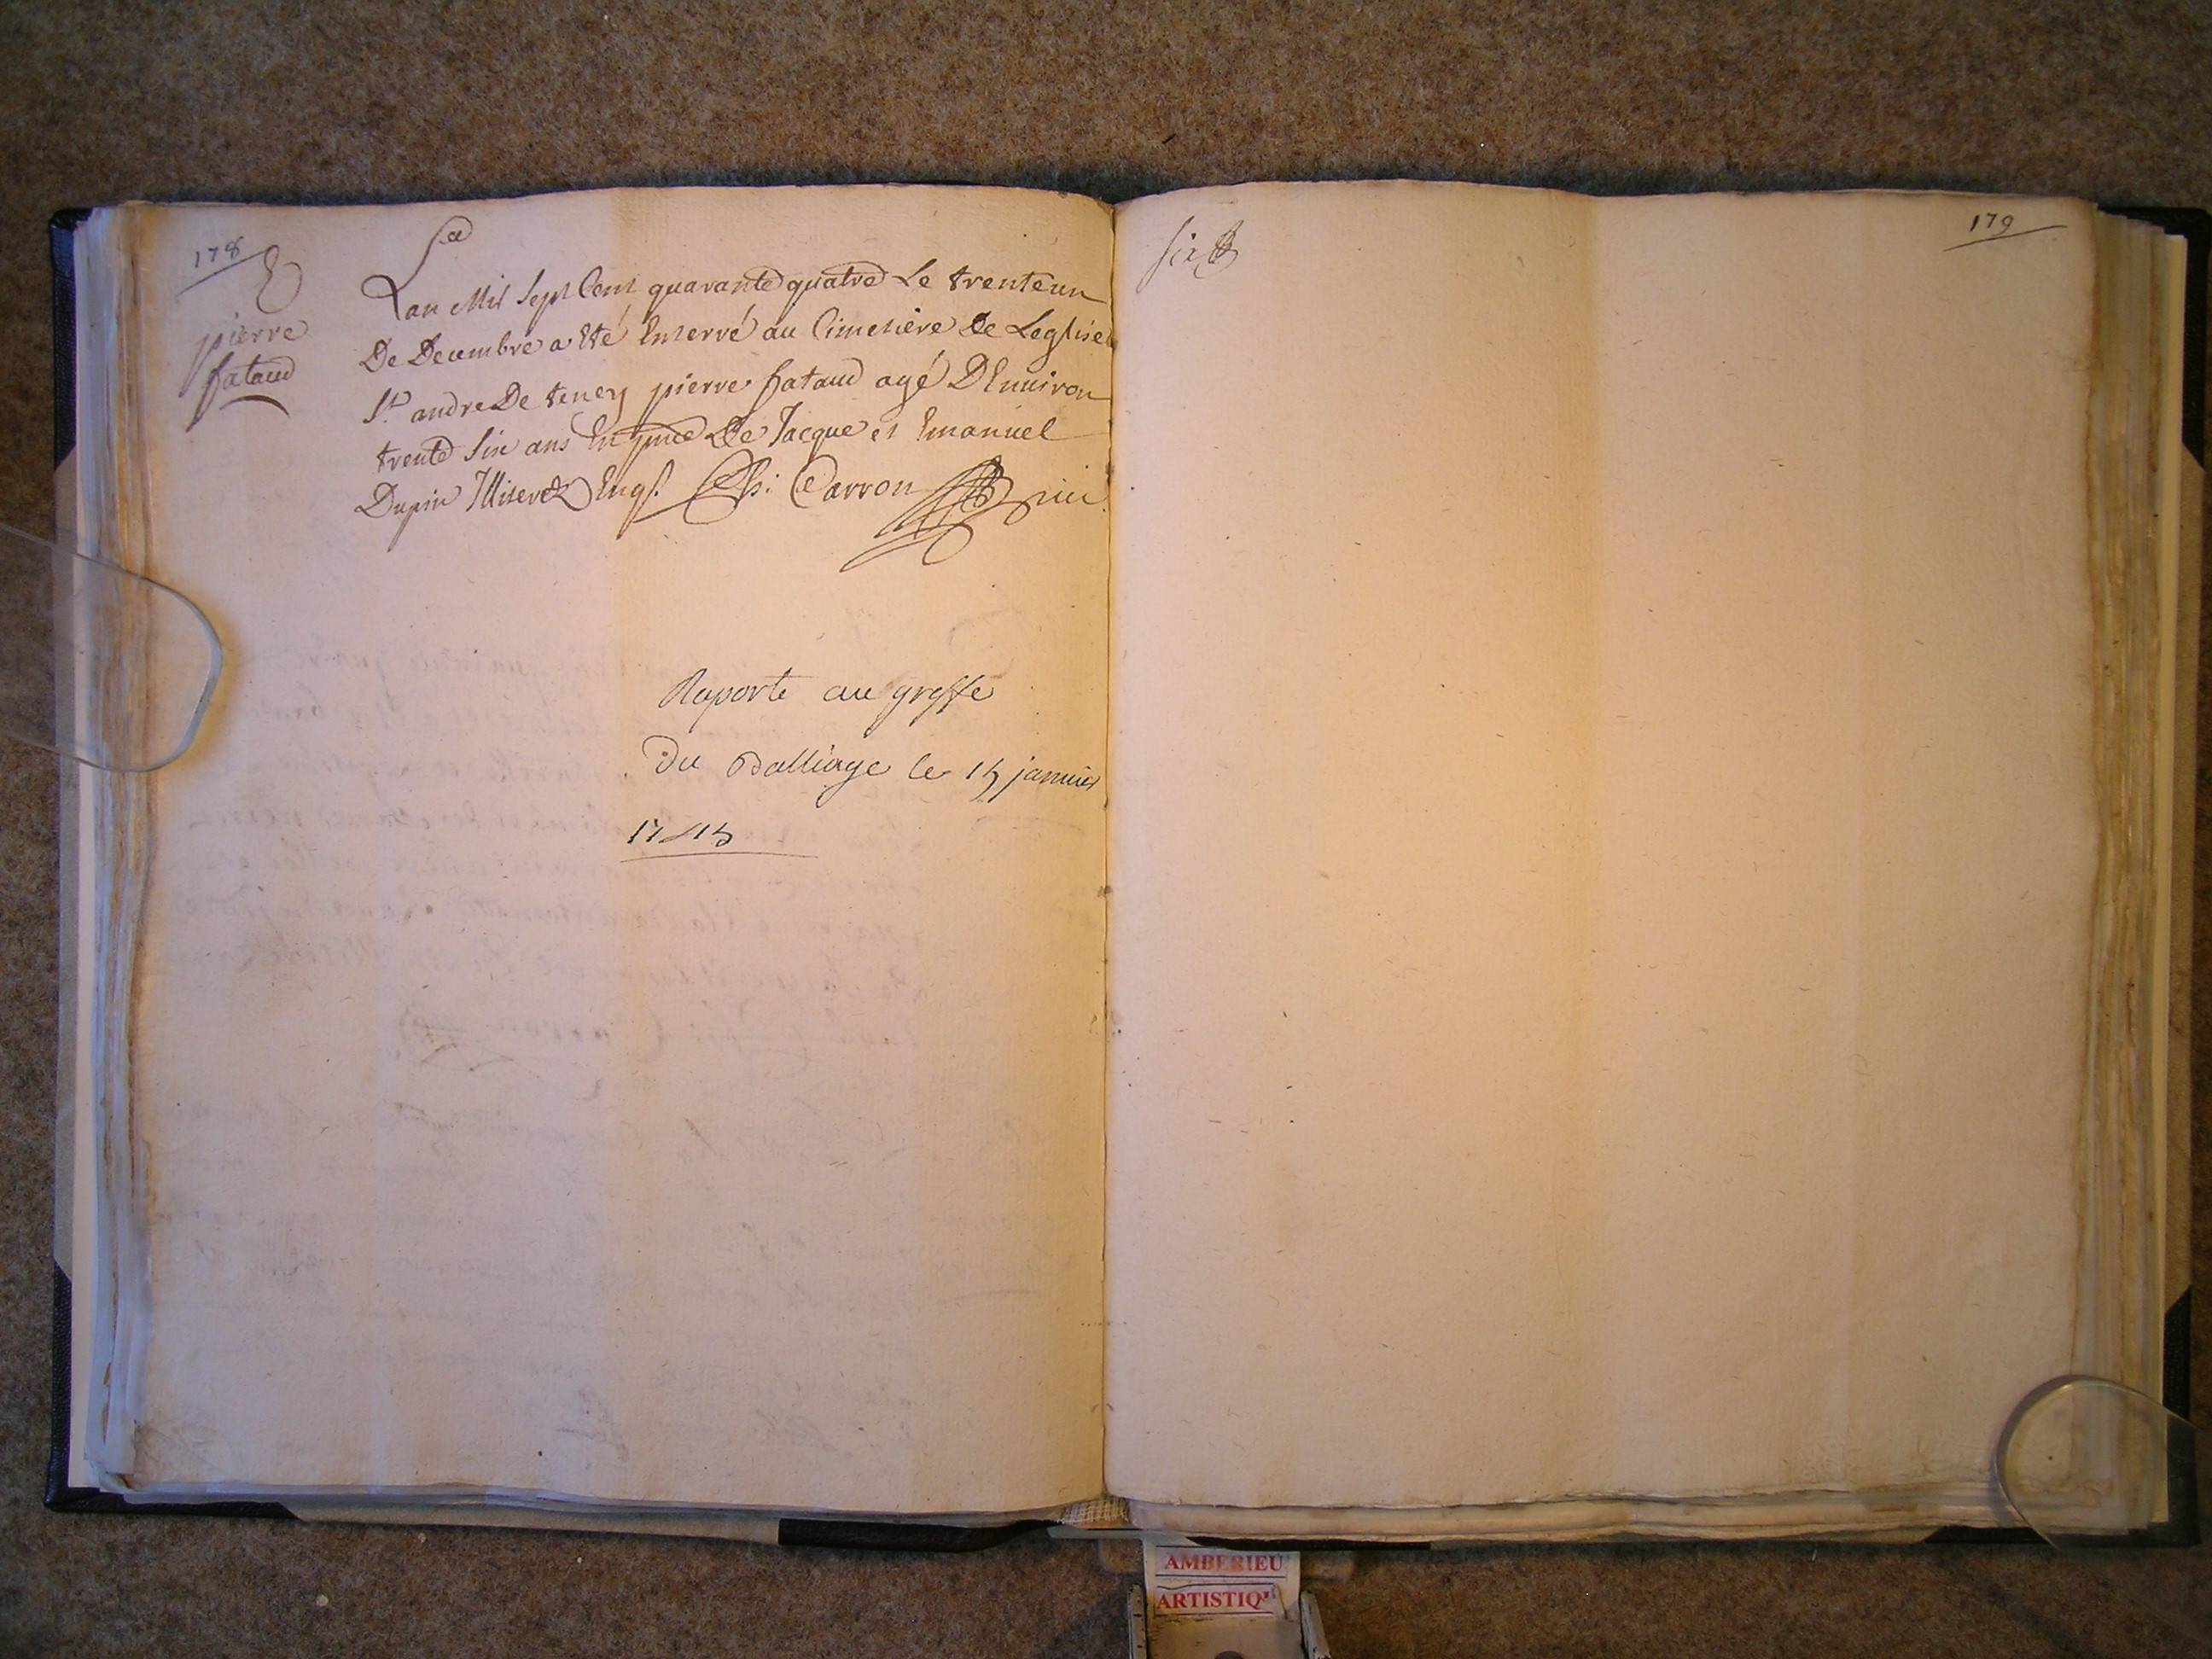 178
pierre
fataud
Lan Mil Sept Cent quarante quatre Le trente un
De Decembre a Eté Enterré au Cimetière De Leglise
St. andre De teney pierre fataud agé DEnuiron
trente Six ans En pnce De Jacque et Emanuel
Dupin Jlliterez Enqs. Carron
Raporte au greffe
Du Balliage le 15 januier
1745
179
AMBERIEU
ARTISTIQ